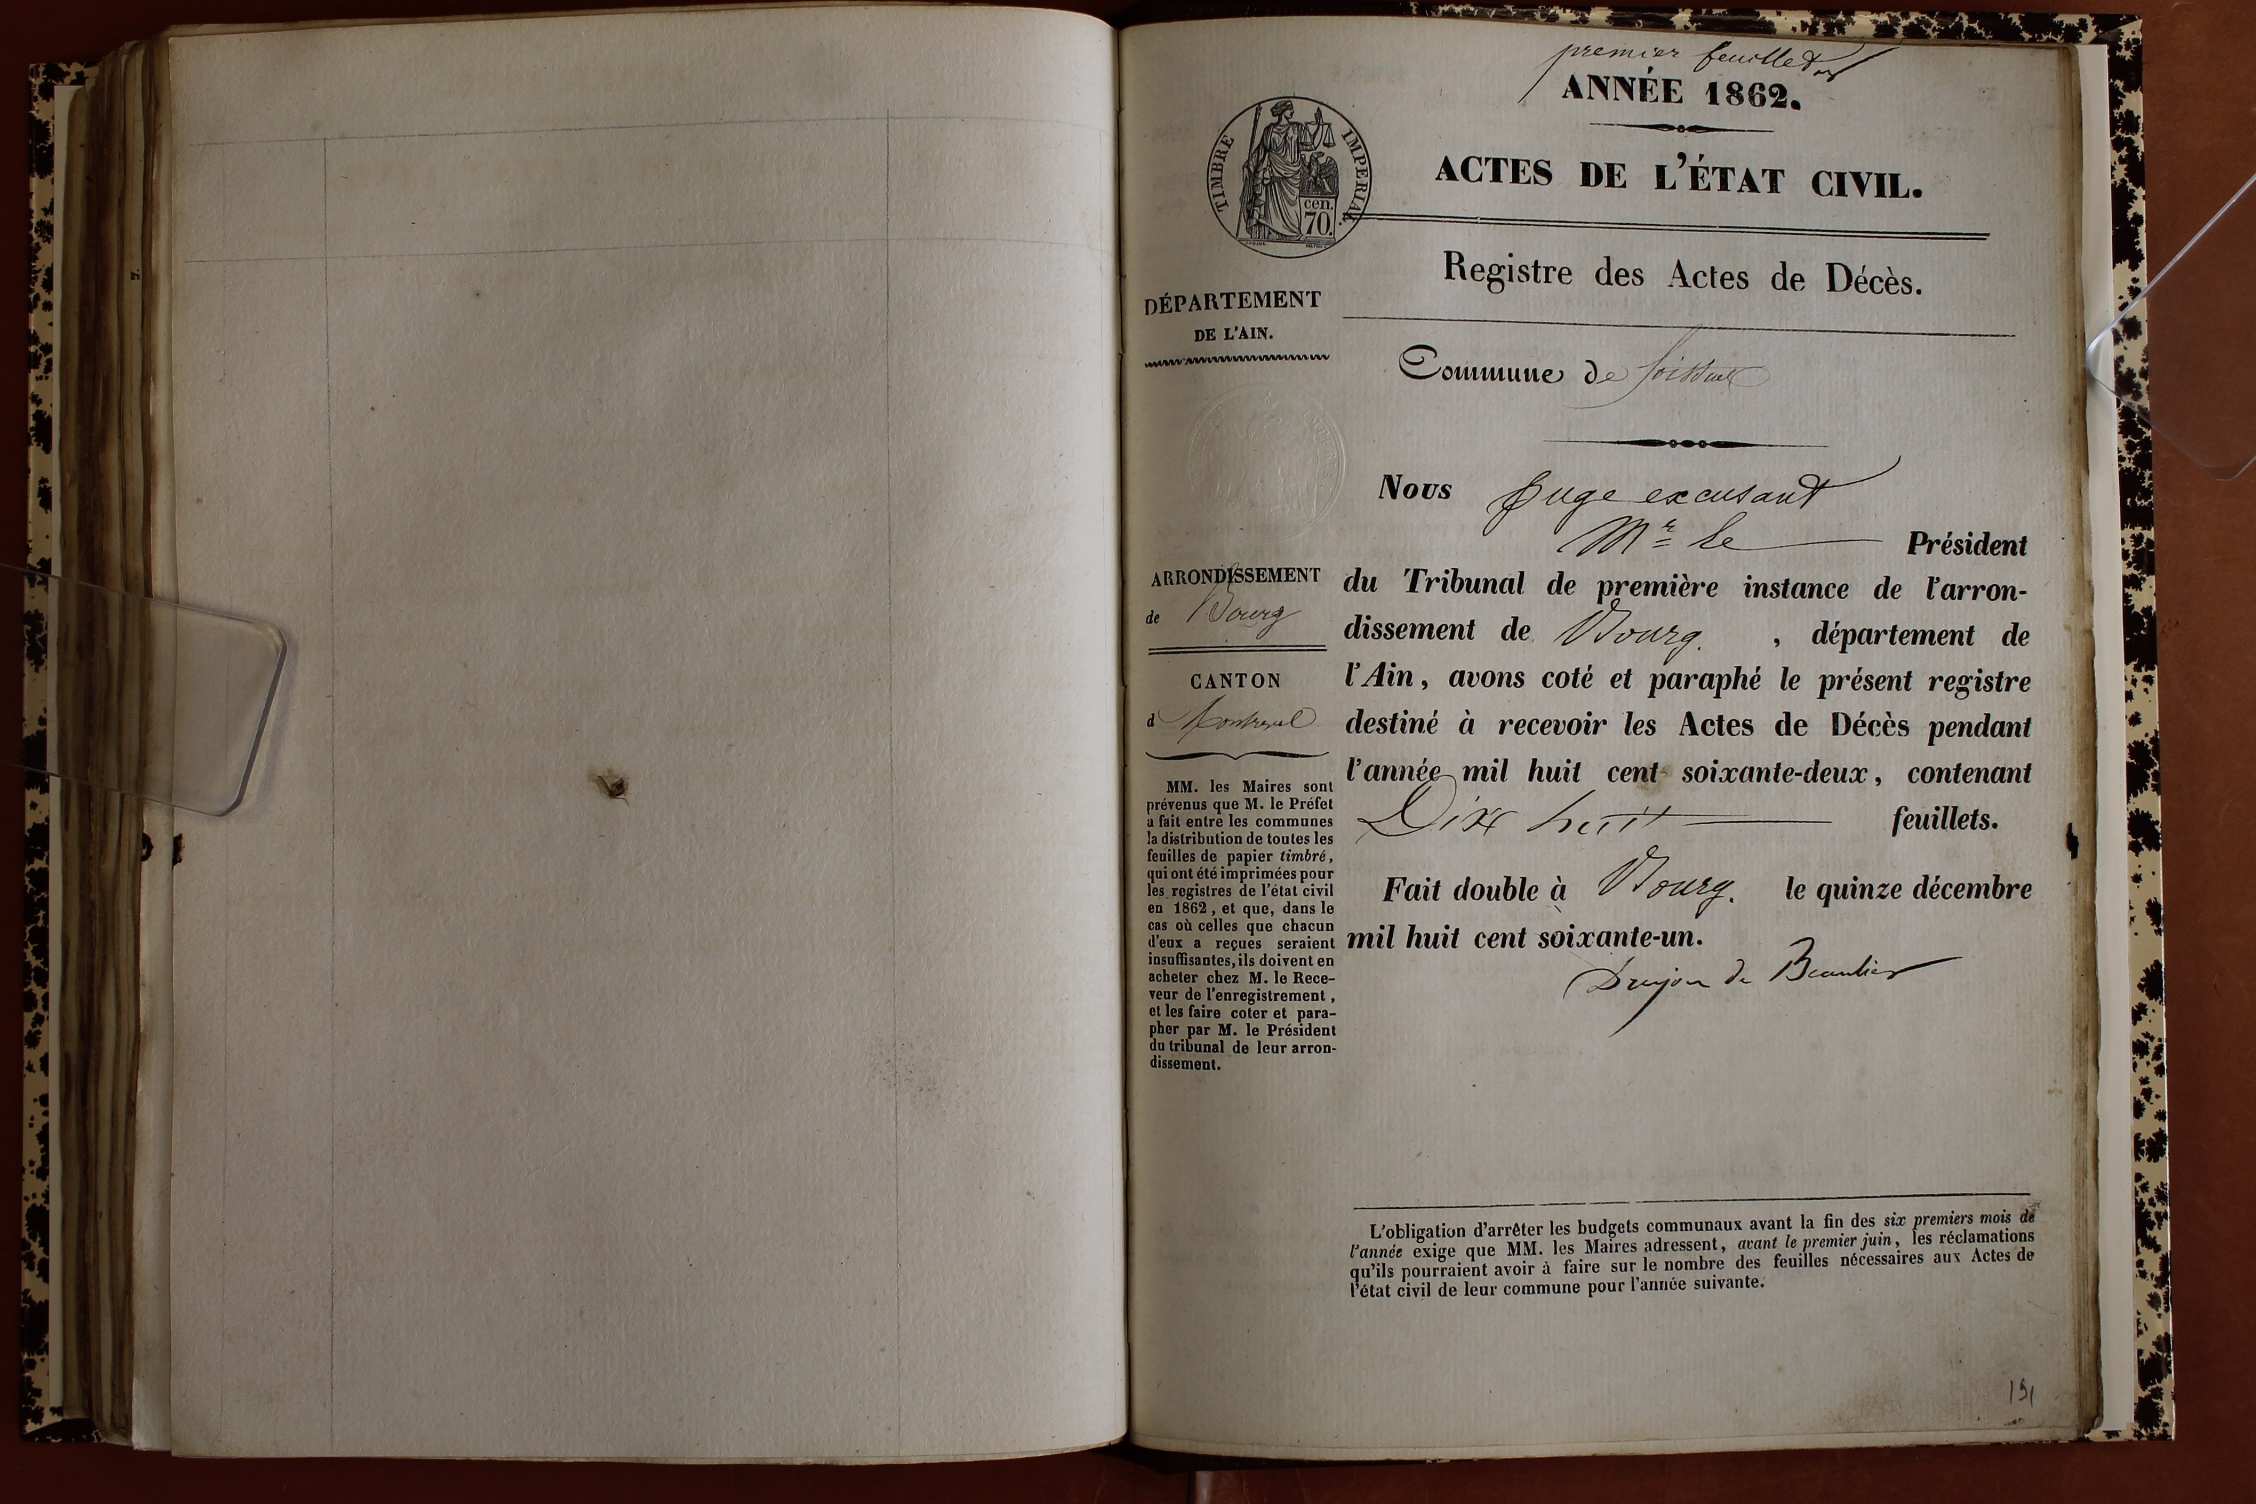 premier feuillet
ANNÉE 1862.
TIMBRE IMPERIAL.
cen.
70.
ACTES DE L'ÉTAT CIVIL.
Registre des Actes de Décès.
DÉPARTEMENT
DE L'AIN.
Commune de
Nous Juge excusant
Mr le Président
du Tribunal de première instance de l'arron-
dissement de Bourg. , département de
l'Ain, avons coté et paraphé le présent registre
destiné à recevoir les Actes de Décès pendant
l'année mil huit cent soixante-deux, contenant
Dix huit feuillets.
Fait double à Bourg. le quinze décembre
mil huit cent soixante-un.
Drujon de Beaulieu
ARRONDISSEMENT
de Bourg
CANTON
d Montrevel
MM. les Maires sont
prévenus que M. le Préfet
a fait entre les communes
la distribution de toutes les
feuilles de papier timbré,
qui ont été imprimées pour
les registres de l'état civil
en 1862, et que, dans le
cas où celles que chacun
d'eux a reçues seraient
insuffisantes, ils doivent en
acheter chez M. le Rece-
veur de l'enregistrement,
et les faire coter et para-
pher par M. le Président
du tribunal de leur arron-
dissement.
L'obligation d'arrêter les budgets communaux avant la fin des six premiers mois de
l'année exige que MM. les Maires adressent, avant le premier juin, les réclamations
qu'ils pourraient avoir à faire sur le nombre des feuilles nécessaires aux Actes de
l'état civil de leur commune pour l'année suivante.
191